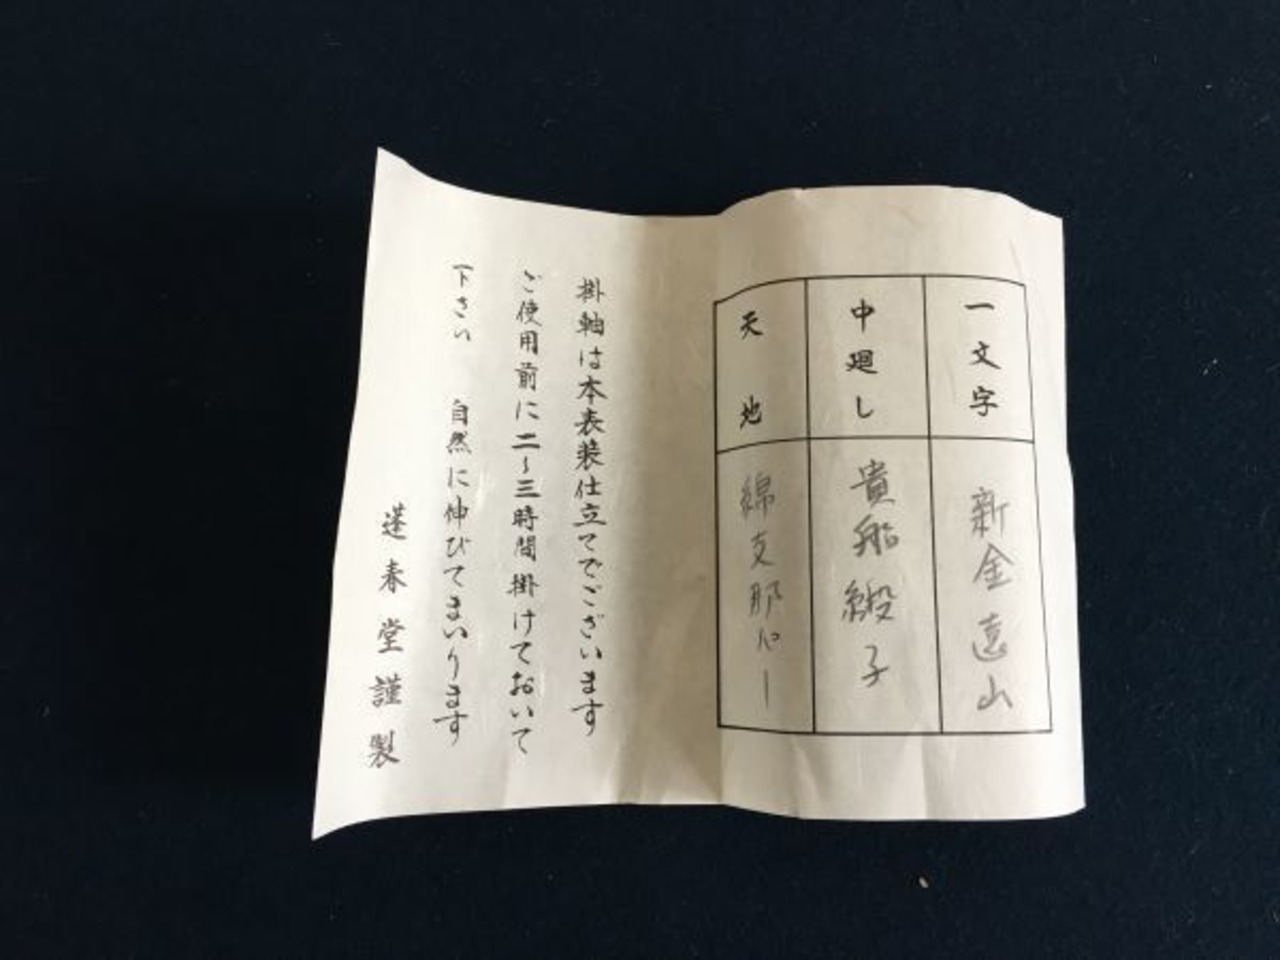 一文字
新金遠山
中廻し
貴船緞子
天地
綿支那パー
掛軸は本表装仕立てでございます
ご使用前に二〜三時間掛けておいて
下さい 自然に伸びてまいります
蓬春堂謹製